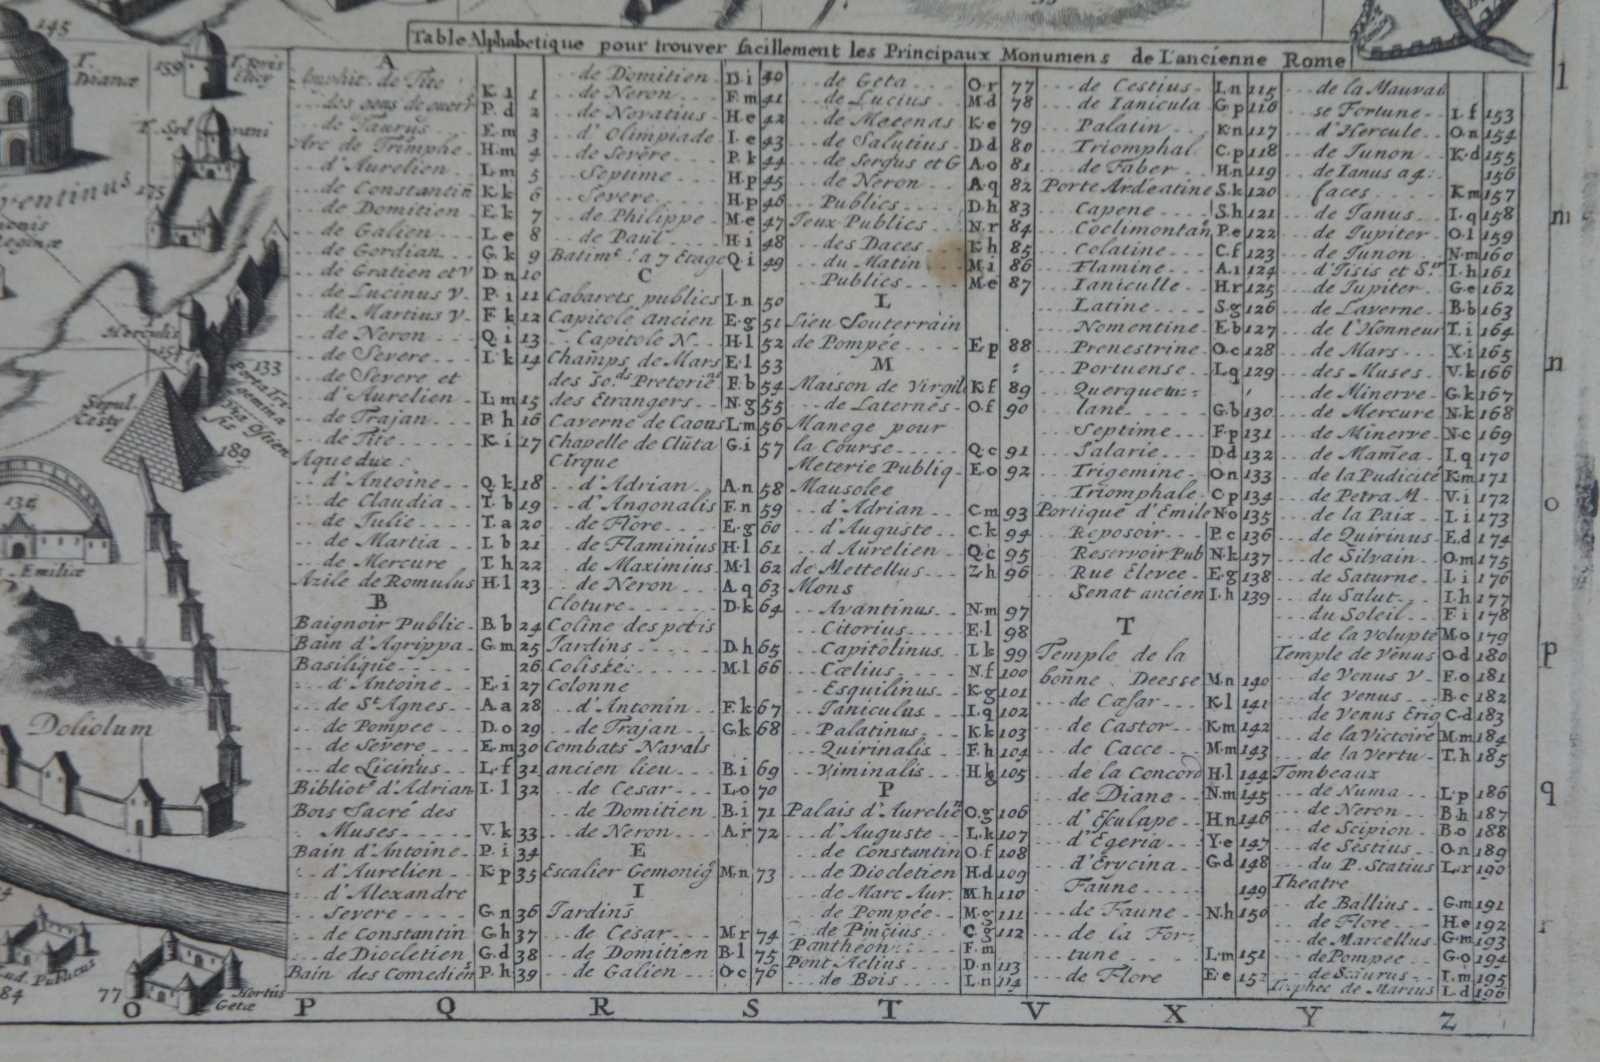 Table Alphabetique pour trouver facillement les Principaux Monumens de L'ancienne Rome
A
Amphit. de Tite K. i 1
des gens de guere P. d 2
de Taurus E. m 3
Arc de Trimphe H. m 4
d'Aurelien L. m 5
de Constantin K. k 6
de Domitien E. k 7
de Galien L. e 8
de Gordian G. k 9
de Gratien et V D. n 10
de Lucinus V. P. i 11
de Martius V. F. k 12
de Neron Q. i 13
de Severe I. k 14
de Severe et
d'Aurelien L. m 15
de Trajan P. h 16
de Tite K. i 17
Aqueduc:
d'Antoine Q. k 18
de Claudia T. b 19
de Julie T. a 20
de Martia I. b 21
de Mercure T. h 22
Azile de Romulus H. l 23
B
Baignoir Public B. b 24
Bain d'Agrippa G. m 25
Basilique 26
d'Antoine E. i 27
de St Agnes A. a 28
de Pompee D. o 29
de Severe E. m 30
de Licinus L. f 31
Bibliot d'Adrian I. l 32
Bois Sacré des
Muses V. k 33
Bain d'Antoine P. i 34
d'Aurelien K. p 35
d'Alexandre
Severe G. n 36
de Constantin G. h 37
de Diocletien G. d 38
Bain des Comediens P. h 39
de Domitien D. i 40
de Neron F. m 41
de Novatius H. e 42
d'Olimpiade I. e 43
de Severe P. k 44
Septime H. p 45
Severe H. p 46
de Philippe M. e 47
de Paul H. i 48
Batimt a 7 Etage Q. i 49
C
Cabarets publics I. n 50
Capitole ancien E. g 51
Capitole N. H. l 52
Champs de Mars E. l 53
des Sods Pretoriens F. b 54
des Etrangers N. g 55
Caverne de Caous L. m 56
Chapelle de Cluta G. i 57
Cirque
d'Adrian A. n 58
d'Angonalis F. n 59
de Flore E. g 60
de Flaminius H. l 61
de Maximius M. l 62
de Neron A. q 63
Cloture D. k 64
Coline des petis
Jardins D. h 65
Colisée M. l 66
Colonne
d'Antonin F. k 67
de Trajan G. k 68
Combats Navals
ancien lieu B. i 69
de Cesar L. o 70
de Domitien B. i 71
de Neron A. r 72
E
Escalier Gemonig M. n 73
I
Jardins
de Cesar M. r 74
de Domitien B. l 75
de Galien O. c 76
de Geta O. r 77
de Lucius M. d 78
de Mecenas K. e 79
de Salutius D. d 80
de Sergus et G A. o 81
de Neron A. q 82
Publics D. h 83
Jeux Publics N. r 84
des Daces K. h 85
du Matin M. i 86
Publics M. e 87
L
Lieu Souterrain
de Pompée E. p 88
M
Maison de Virgile K. f 89
de Laternes O. f 90
Manege pour
la Course Q. c 91
Meterie Publiq E. o 92
Mausolee
d'Adrian C. m 93
d'Auguste C. k 94
d'Aurelien Q. c 95
de Mettellus Z. h 96
Mons
Avantinus N. m 97
Citorius E. l 98
Capitolinus I. k 99
Cælius N. f 100
Esquilinus K. g 101
Janiculus I. q 102
Palatinus K. k 103
Quirinalis F. h 104
Viminalis H. g 105
P
Palais d'Aurelien O. g 106
d'Auguste L. k 107
de Constantin O. f 108
de Diocletien H. d 109
de Marc Aur. M. h 110
de Pompée M. g 111
de Pincius C. g 112
Pantheon F. m
Pont Aelius D. n 113
de Bois L. n 114
de Cestius L. n 115
de Ianicula G. p 116
Palatin K. n 117
Triomphal C. p 118
de Faber H. n 119
Porte Ardeatine S. k 120
Capene S. h 121
Coelimontan P. e 122
Colatine C. f 123
Flamine A. i 124
Ianiculle H. r 125
Latine S. g 126
Nomentine E. b 127
Prenestrine O. c 128
Portuense L. q 129
Querquetu
lane G. b 130
Septime F. p 131
Salarie D. d 132
Trigemine O. n 133
Triomphale C. p 134
Portique d'Emile N. o 135
Reposoir P. c 136
Reservoir Pub N. k 137
Rue Elevee E. g 138
Senat ancien I. h 139
T
Temple de la
bonne Deesse M. n 140
de Cæsar K. l 141
de Castor K. m 142
de Cacce M. m 143
de la Concord H. l 144
de Diane N. m 145
d'Esculape H. n 146
d'Egeria Y. e 147
d'Erycina G. d 148
Faune 149
de Faune N. h 150
de la For
tune L. m 151
de Flore E. e 152
de la Mauvai
se Fortune I. f 153
d'Hercule O. n 154
de Junon K. d 155
de Ianus a 4 156
faces K. m 157
de Janus I. q 158
de Jupiter O. l 159
de Junon N. m 160
d'Isis et Ser I. h 161
de Jupiter G. e 162
de Laverne B. b 163
de l'Honneur T. i 164
de Mars X. i 165
des Muses V. k 166
de Minerve G. k 167
de Mercure N. k 168
de Minerve N. c 169
de Mamea L. q 170
de la Pudicité K. m 171
de Petra M V. i 172
de la Paix L. i 173
de Quirinus E. d 174
de Silvain O. m 175
de Saturne I. i 176
du Salut I. h 177
du Soleil F. i 178
de la Volupte M. o 179
Temple de Venus O. d 180
de Venus V F. o 181
de Venus B. c 182
de Venus Erig C. d 183
de la Victoire M. m 184
de la Vertu T. h 185
Tombeaux
de Numa L. p 186
de Neron B. h 187
de Scipion B. o 188
de Sestius O. n 189
du P. Statius L. r 190
Theatre
de Ballius G. m 191
de Flore H. e 192
de Marcellus G. m 193
de Pompee G. o 194
de Scaurus I. m 195
Trophée de Marius L. d 196
145
T. Dianæ
159
T. Iovis Elicy
T. Sol
175
Herculis
133
Porta Tri
gemina
Via Ostien
sis
Sepul.
Cesty
189
134
Emiliæ
Doliolum
Lud. Publicus
84
77
Hortus
Getæ
O P Q R S T V X Y Z
l
m
n
o
p
q
r